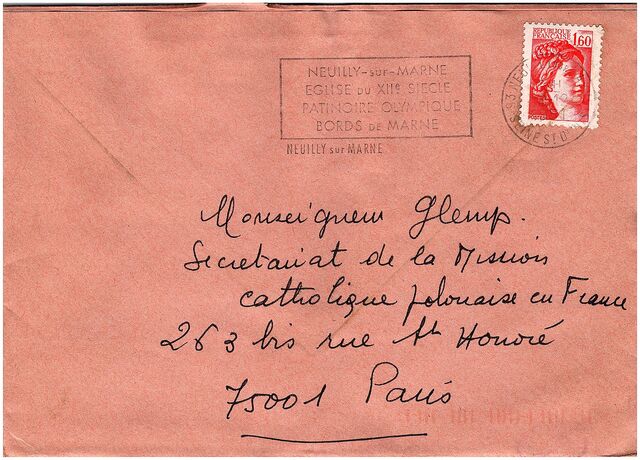 REPUBLIQUE
FRANÇAISE
1,60
POSTES
NEUILLY-SUR-MARNE
EGLISE DU XIIe SIECLE
PATINOIRE OLYMPIQUE
BORDS DE MARNE
NEUILLY sur MARNE
Monseigneur Glemp.
Secretariat de la Mission
catholique polonaise en France
263 bis rue St Honoré
75001 Paris